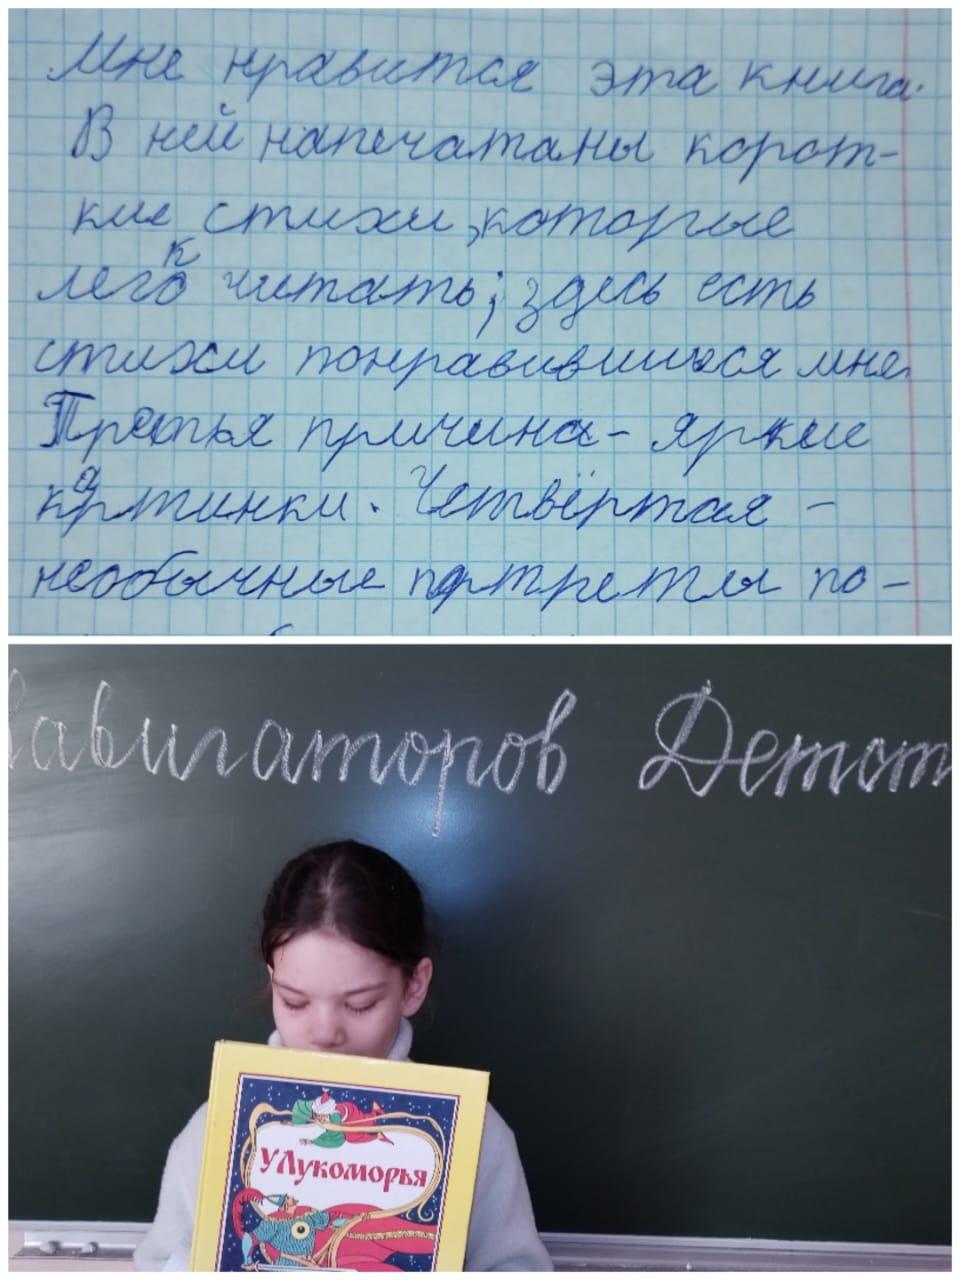 Мне нравится эта книга.
В ней напечатаны корот-
кие стихи, которые
легко читать; здесь есть
стихи понравившиеся мне.
Третья причина - яркие
картинки. Четвёртая -
необычные портреты по-
Навигаторов Детст
У Лукоморья